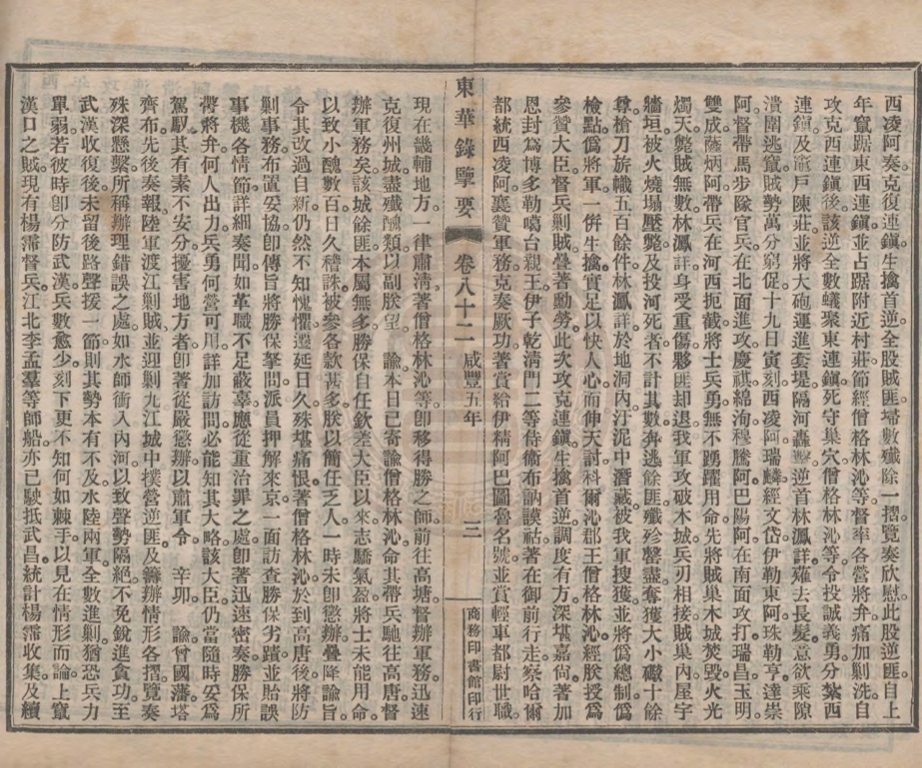 西凌阿奏克復連鎮生擒首逆全股賊匪埽數殲除一摺覽奏欣慰此股逆匪自上
年竄踞東西連鎮並占踞附近村莊節經僧格林沁等督率各營將弁痛加剿洗自
攻克西連鎮後該逆全數蟻聚東連鎮死守巢穴僧格林沁等令投誠義勇分紮西
連鎮及竈戶陳莊並將大砲運進套堤隔河轟擊逆首林鳳詳薙去長髮意欲乘隙
潰圍逃竄賊勢萬分窮促十九日寅刻西凌阿瑞麟經文岱伊勒東阿珠勒亨達崇
阿督帶馬步隊官兵在北面進攻慶祺綿洵穆騰阿巴陽阿在南面攻打瑞昌玉明
雙成薩炳阿帶兵在河西扼截將士兵勇無不踴躍用命先將賊巢木城焚毀火光
燭天斃賊無數林鳳詳身受重傷夥匪却退我軍攻破木城兵刃相接賊巢內屋宇
牆垣被火燒塌壓斃及投河死者不計其數奔逃餘匪殲殄罄盡奪獲大小礮十餘
尊槍刀旂幟五百餘件林鳳詳於地洞內汙泥中潛藏被我軍搜獲並將僞總制僞
檢點僞將軍一併生擒實足以快人心而伸天討科爾沁郡王僧格林沁經朕授爲
參贊大臣督兵剿賊疊著勳勞此次攻克連鎮生擒首逆調度有方深堪嘉尙著加
恩封爲博多勒噶台親王伊子乾清門二等侍衛布訥謨祜著在御前行走察哈爾
都統西凌阿襄贊軍務克奏厥功著賞給伊精阿巴圖魯名號並賞輕車都尉世職
東華錄擥要 卷八十二 咸豐五年 三 商務印書館印行
現在畿輔地方一律肅清著僧格林沁等卽移得勝之師前往高塘督辦軍務迅速
克復州城盡殲醜類以副朕望 諭本日已寄諭僧格林沁命其帶兵馳往高唐督
辦軍務矣該城餘匪本屬無多勝保自任欽差大臣以來志驕氣盈將士未能用命
以致小醜數百日久稽誅被參各款甚多朕以簡任乏人一時未卽懲辦疊降諭旨
令其改過自新仍然不知愧懼遷延日久殊堪痛恨著僧格林沁於到高唐後將防
剿事務布置妥協卽傳旨將勝保拏問派員押解來京一面訪查勝保劣蹟並貽誤
事機各情節詳細奏聞如革職不足蔽辜應從重治罪之處卽著迅速密奏勝保所
帶將弁何人出力兵勇何營可用詳加訪問必能知其大略該大臣仍當隨時安爲
駕馭其有素不安分擾害地方者卽著從嚴懲辦以肅軍令 辛卯 諭曾國藩塔
齊布先後奏報陸軍渡江剿賊並迎剿九江城中撲營逆匪及籌辦情形各摺覽奏
殊深懸繫所稱辦理錯誤之處如水師衝入內河以致聲勢隔絕不免銳進貪功至
武漢收復後未留後路聲援一節則其勢本有不及水陸兩軍全數進剿猶恐兵力
單弱若彼時卽分防武漢兵數愈少刻下更不知何如棘手以見在情形而論上竄
漢口之賊現有楊霈督兵江北李孟羣等師船亦已駛抵武昌統計楊霈收集及續